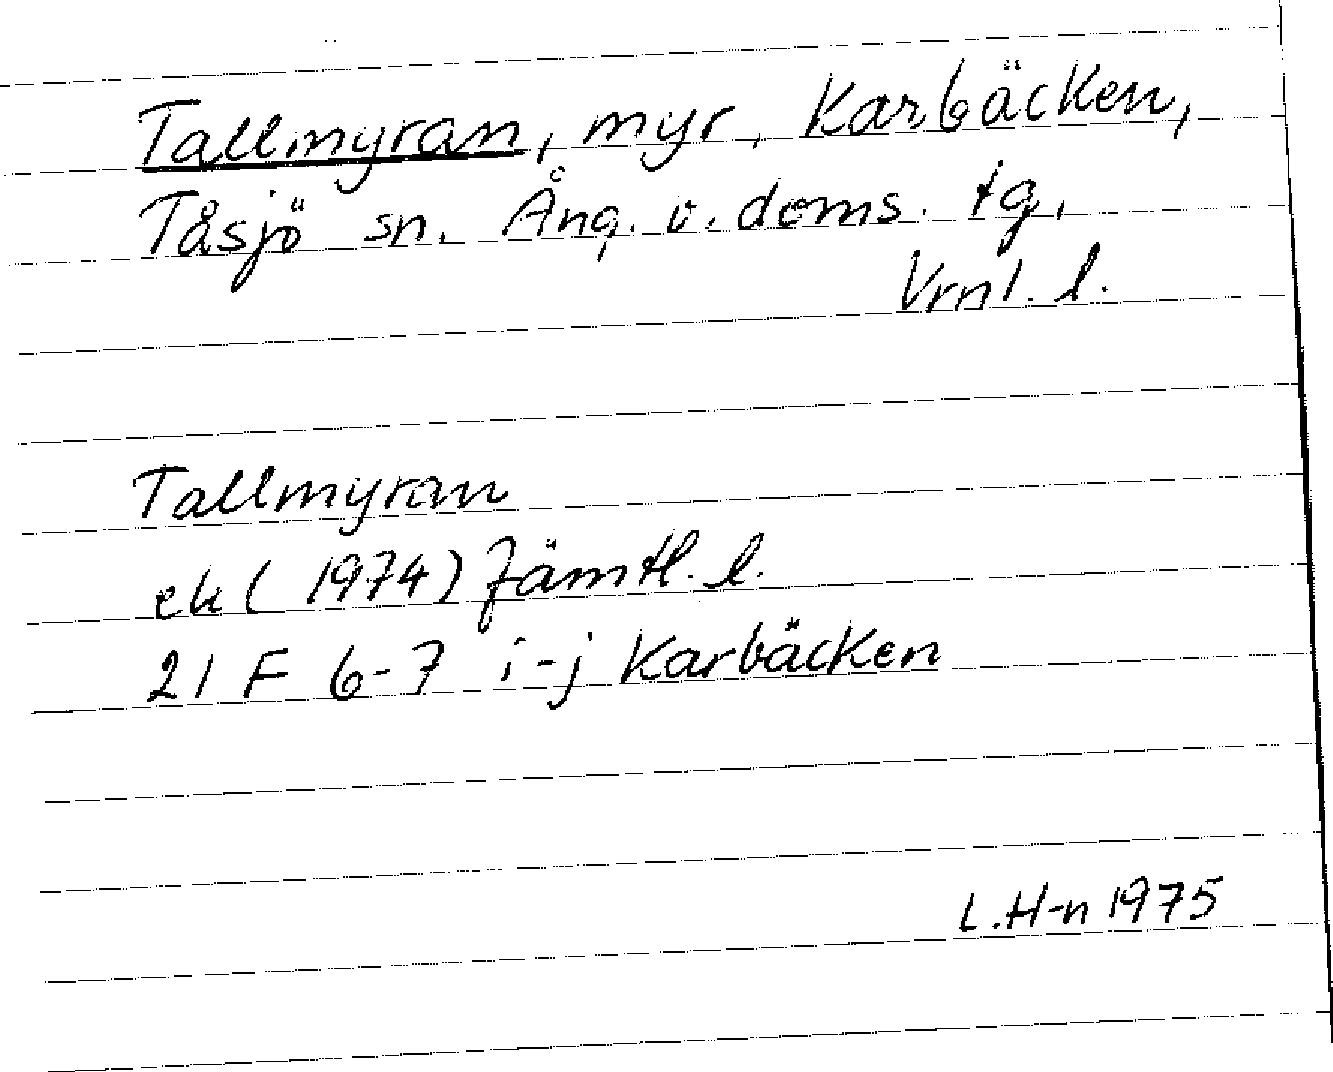 Tallmyran, myr, Karbäcken,
Tåsjö sn. Ång. v. doms. tg,
Vrnl. l.
Tallmyran
ek (1974) Jämtl. l.
21 F 6-7 i-j Karbäcken
L.H-n 1975